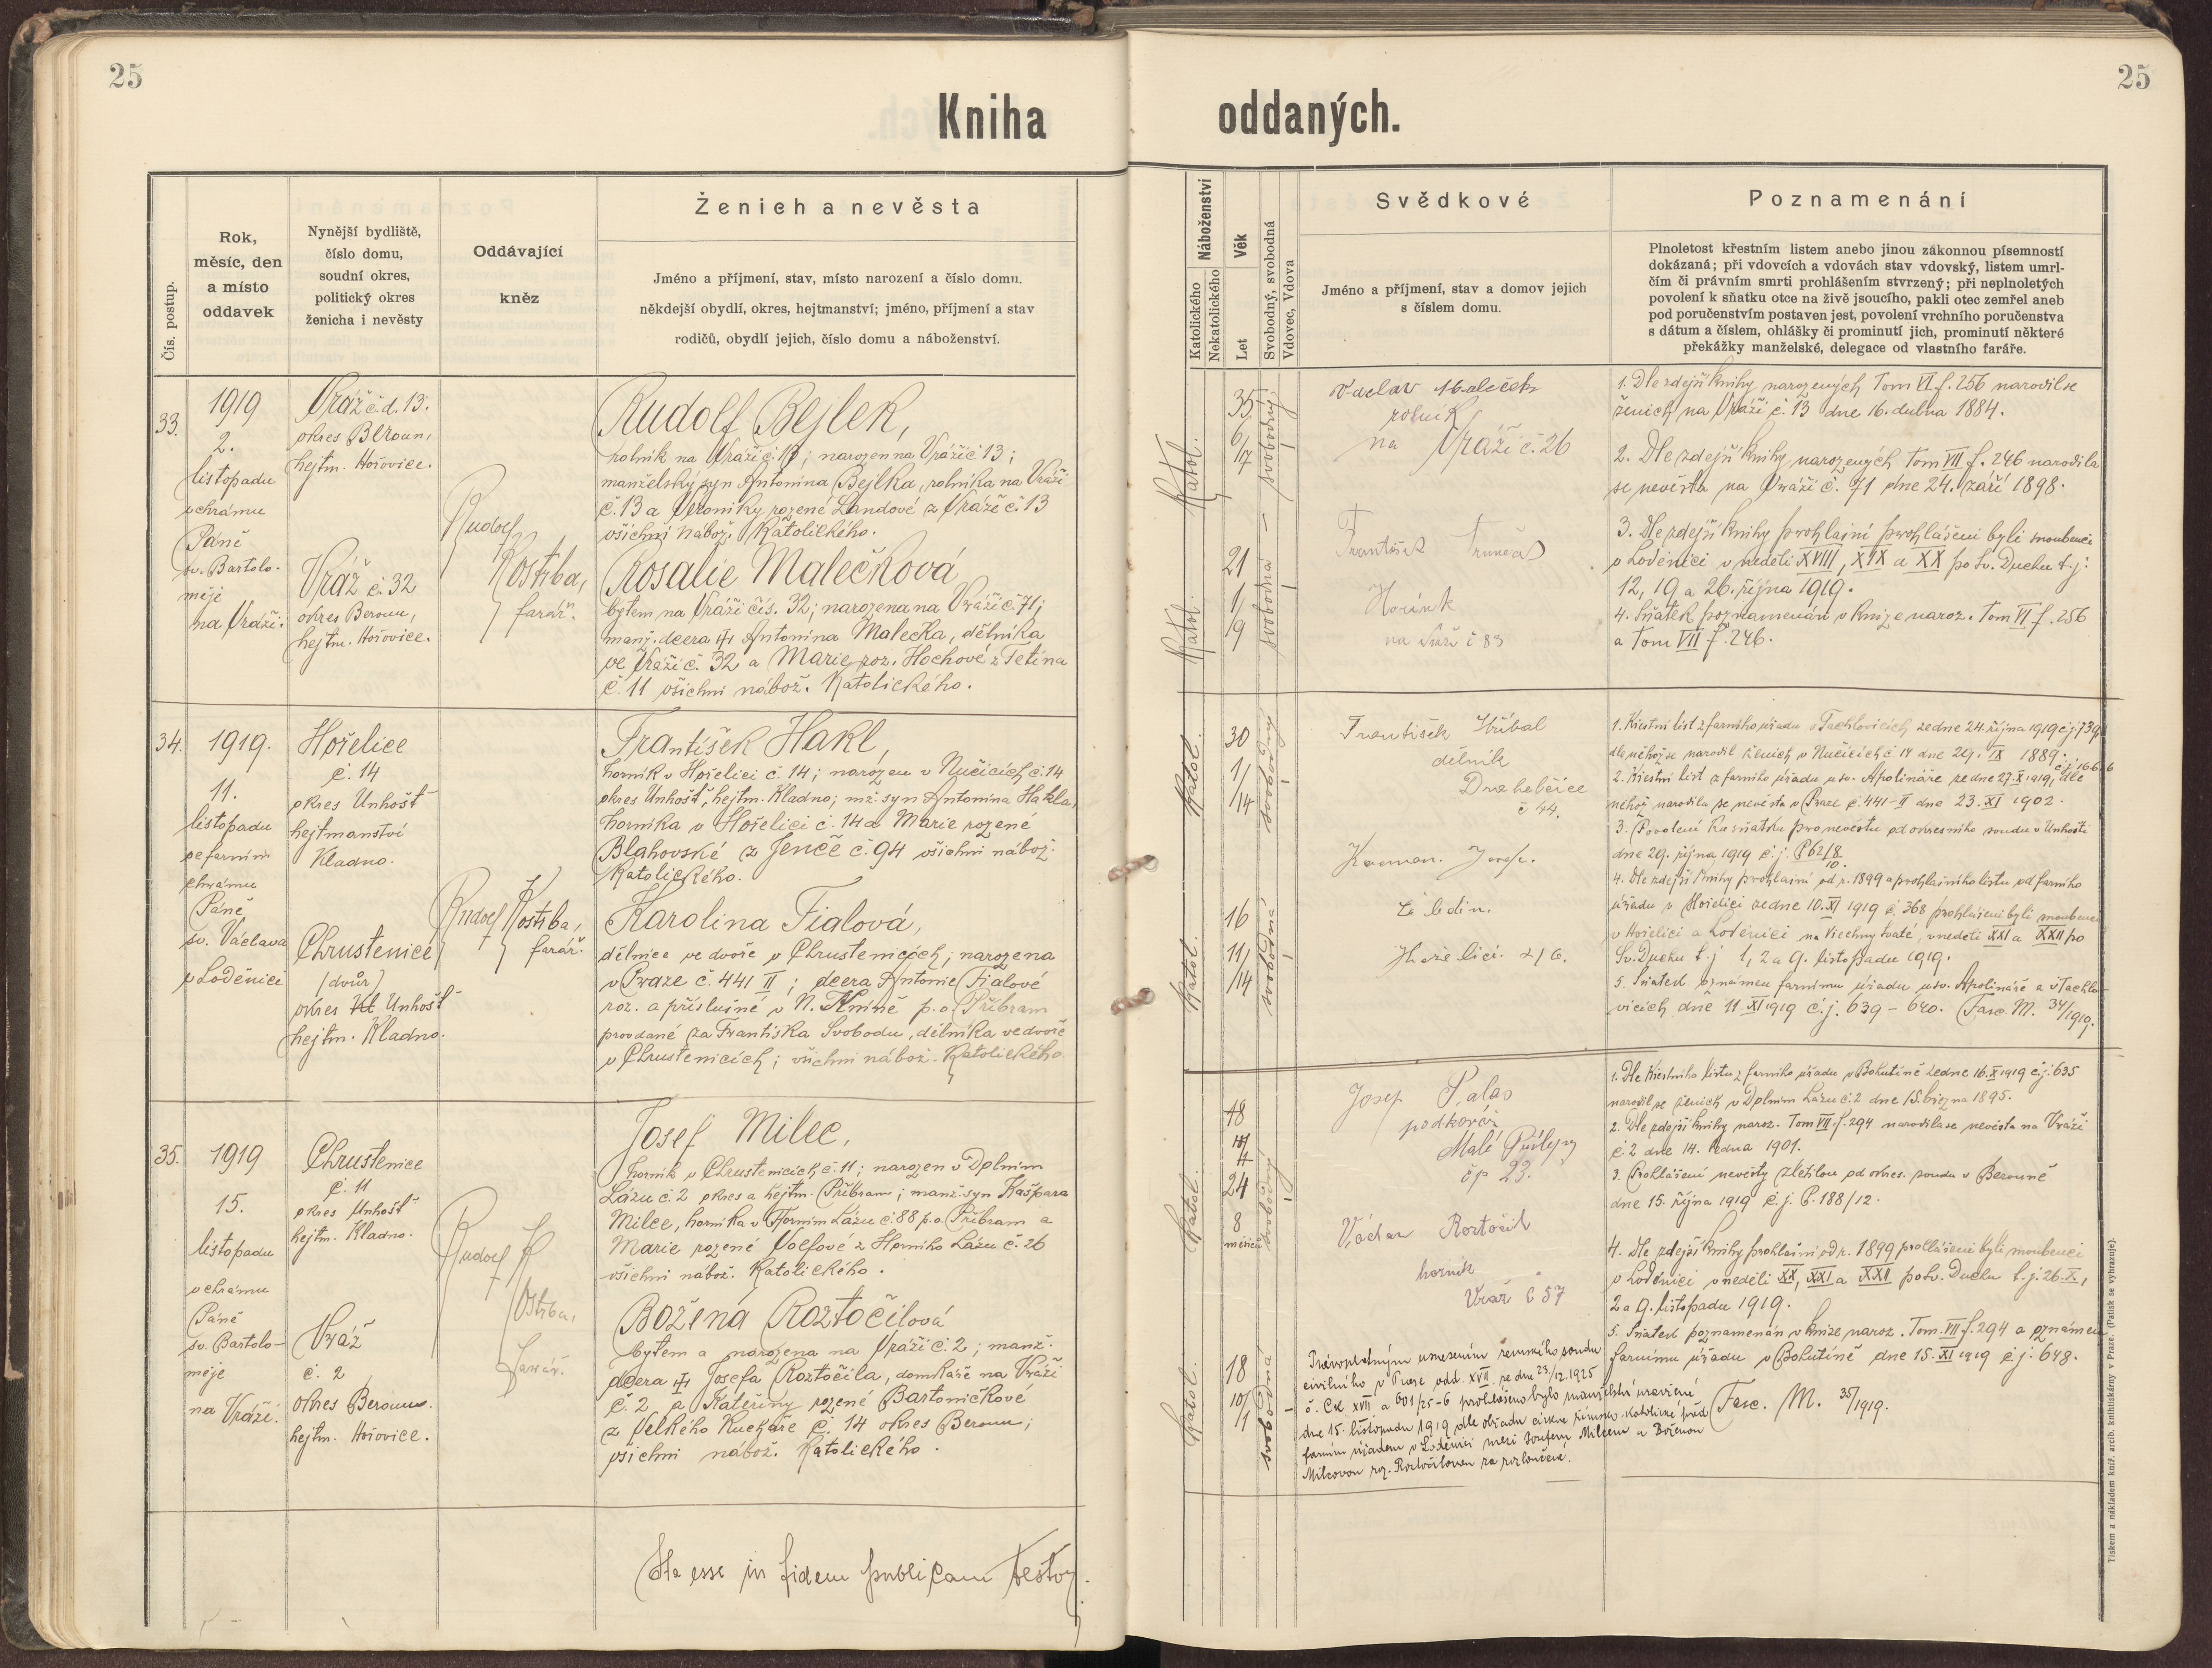 25
25
Kniha
oddaných.
Čís. postup.
Rok,
měsíc, den
a místo
oddavek
Nynější bydliště,
číslo domu,
soudní okres,
politický okres
ženicha i nevěsty
Oddávající
kněz
Ženich a nevěsta
Jméno a příjmení, stav, místo narození a číslo domu.
někdejší obydlí, okres, hejtmanství; jméno, příjmení a stav
rodičů, obydlí jejich, číslo domu a náboženství.
Náboženství
Katolického
Nekatolického
Věk
Let
Svobodný, svobodná
Vdovec, Vdova
Svědkové
Jméno a příjmení, stav a domov jejich
s číslem domu.
Poznamenání
Plnoletost křestním listem anebo jinou zákonnou písemností
dokázaná; při vdovcích a vdovách stav vdovský, listem umrl-
čím či právním smrti prohlášením stvrzený; při neplnoletých
povolení k sňatku otce na živě jsoucího, pakli otec zemřel aneb
pod poručenstvím postaven jest, povolení vrchního poručenstva
s dátum a číslem, ohlášky či prominutí jich, prominutí některé
překážky manželské, delegace od vlastního faráře.
33.
1919
2.
listopadu
v chrámu
Páně
sv. Bartolo-
měje
na Vráži.
Vráž č.d. 13.
okres Beroun,
hejtm. Hořovice.
Vráž č. 32
okres Beroun,
hejtm. Hořovice.
Rudolf
Kostiba,
farář.
Rudolf Bejlek,
rolník na Vráži č. 13; narozen na Vráži č 13;
manželský syn Antonína Bejlka, rolníka na Vráži
č. 13 a Veroniky rozené Landové z Vráže č. 13
všichni nábož. Katolického.
Rosalie Malečková
bytem na Vráži čís. 32; narozena na Vráži č. 71;
manž. dcera Antonína Malečka, dělníka
ve Vráži č. 32 a Marie roz. Hochové z Tetína
č. 11 všichni nábož. Katolického.
Katol.
35
6/17
svobodný
Katol.
21
1/9
svobodná
Václav Maleček
rolník
na Vráži č. 26
František
Horník
na Vráži č 83
1. Dle zdejší knihy narozených Tom VI f. 256 narodil se
ženich na Vráži č. 13 dne 16. dubna 1884.
2. Dle zdejší knihy narozených Tom VII f. 246 narodila
se nevěsta na Vráži č. 71 dne 24. září 1898.
3. Dle zdejší knihy prohlašní prohlášeni byli snoubenci
v Loděnici v neděli XVIII, XIX a XX po Sv. Duchu t. j.
12, 19 a 26. října 1919.
4. Sňatek poznamenán v knize naroz. Tom VI f. 256
a Tom VII f. 246.
34.
1919.
11.
listopadu
ve farním
chrámu
Páně
sv. Václava
v Loděnici
Hořelice
č. 14
okres Unhošť
hejtmanství
Kladno.
Chrustenice
(dvůr)
okres Unhošť
hejtm. Kladno.
Rudolf Kostiba,
farář.
František Hakl,
horník v Hořelici č. 14; narozen v Nučicích č. 14
okres Unhošť, hejtm. Kladno; mž. syn Antonína Hakla,
horníka v Hořelici č. 14 a Marie rozené
Blahovské z Jenče č. 94 všichni nábož.
Katolického.
Karolina Fialová,
dělnice ve dvoře v Chrustenicích; narozena
v Praze č. 441 II; dcera Antonie Fialové
roz. a příslušné v N. Kníně p. o. Příbram
provdané za Františka Svobodu, dělníka ve dvoře
v Chrustenicích; všichni nábož. Katolického.
Katol.
30
1/14
svobodný
Katol.
16
11/14
svobodná
František Hříbal
dělník
č 44.
Josef.
1. Křestní list z farního úřadu v Tachlovicích ze dne 24. října 1919 č.j. 739,
dle něhož se narodil ženich v Nučicích č. 14 dne 29. IX 1889.
2. Křestní list z farního úřadu u sv. Apolináře ze dne 27. X 1919, dle
něhož narodila se nevěsta v Praze č. 441-II dne 23. XI 1902.
3. Povolení ku sňatku pro nevěstu od okresního soudu v Unhošti
dne 29. října 1919 č. j. P 62/8
10.
4. Dle zdejší knihy prohlašní od r. 1899 a prohlašního listu od farního
úřadu v Hořelici ze dne 10. XI 1919 č. 368 prohlášeni byli snoubenci
v Hořelici a Loděnici na Všechny Svaté, v neděli XXI a XXII po
Sv. Duchu t. j. 1, 2 a 9. listopadu 1919.
5. Sňatek oznámen farnímu úřadu u sv. Apolináře a v Tachlo-
vicích dne 11. XI 1919 č. j. 639 - 640. Fasc. M. 34/1919.
35.
1919
15.
listopadu
v chrámu
Páně
sv. Bartolo-
měje
na Vráži.
Chrustenice
č. 11
okres Unhošť
hejtm. Kladno.
Vráž
č. 2
okres Beroun.
hejtm. Hořovice.
Rudolf K
ostiba,
farář.
Josef Milec,
horník v Chrustenicích č. 11; narozen v Dolním
Lázu č. 2 okres a hejtm. Příbram; manž. syn Kašpara
Milce, horníka v Horním Lázu č. 88 p. o. Příbram a
Marie rozené Volfové z Horního Lázu č. 26
všichni nábož. Katolického.
Božena Roztočilová
bytem a narozena na Vráži č. 2; manž.
dcera Josefa Roztočila, domkáře na Vráži
č. 2 a Kateřiny rozené Bartoničkové
z Velkého Kuchaře č. 14 okres Beroun;
všichni nábož. Katolického.
Katol.
24
8
měsíců
svobodný
Katol.
18
10/1
svobodná
Josef Palas
podkovář
Malé Přílepy
čp 23.
Václav Roztočil
horník
Vráž č 57
Právoplatným usnesením zemského soudu
civilního v Praze odd. XVII. ze dne 23/12. 1925
č. Ck XVII a 601/25-6 prohlášeno bylo manželství uzavřené
dne 15. listopadu 1919 dle obřadu církve římsko-katolické před
farním úřadem v Loděnici mezi Josefem Milcem a Boženou
Milcovou roz. Roztočilovou za rozloučené.
1. Dle křestního listu z farního úřadu v Bohutíně ze dne 16. X 1919 č.j. 635
narodil se ženich v Dolním Lázu č. 2 dne 15. března 1895.
2. Dle zdejší knihy naroz. Tom VII f. 294 narodila se nevěsta na Vráži
č. 2 dne 14. ledna 1901.
3. Prohlášení nevěsty zletilou od okres. soudu v Berouně
dne 15. října 1919 č. j. P. 188/12.
4. Dle zdejší knihy prohlašní od r. 1899 prohlášeni byli snoubenci
v Loděnici v neděli XX, XXI a XXII po Sv. Duchu t. j. 26. X.,
2 a 9. listopadu 1919.
5. Sňatek poznamenán v knize naroz. Tom. VII f. 294 a oznámen
farnímu úřadu v Bohutíně dne 15. XI 1919 č j. 648.
Fasc. M. 35/1919.
Ita esse in fidem publicam testor.
Tiskem a nákladem kníž. arcib. knihtiskárny v Praze. (Patisk se vyhrazuje).